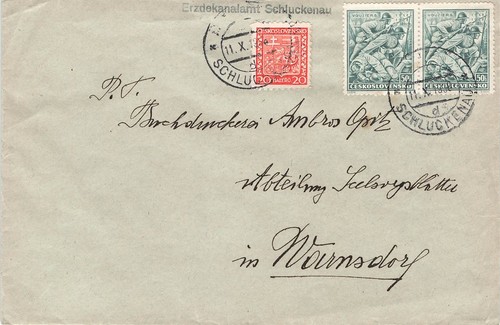 Erzdekanalamt Schluckenau
ČESKOSLOVENSKO
20 HALÉŘŮ 20
50 50
ČESKOSLOVENSKO ČESKOSLOVENSKO
11.X.
SCHLUCKENAU
11.X.
SCHLUCKENAU
d
P. T.
Buchdruckerei Ambros Opitz
Abteilung Seelsorgeblätter
in Warnsdorf